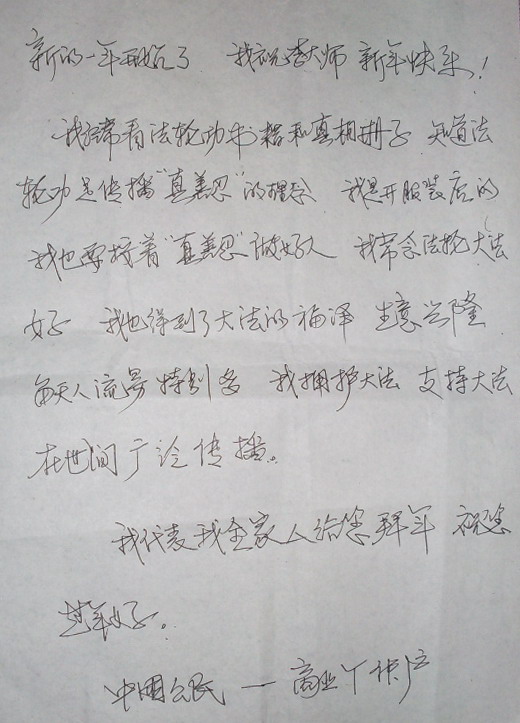 新的一年开始了 我祝李大师 新年快乐！
我经常看法轮功书籍和真相册子 知道法
轮功是传播“真善忍”的理念 我是开服装店的
我也要按着“真善忍”做好人 我常念法轮大法
好 我也得到了大法的福泽 生意兴隆
每天人流量特别多 我拥护大法 支持大法
在世间广泛传播。
我代表我全家人给您拜年 祝您
过年好。
中国公民 — 商业个体户